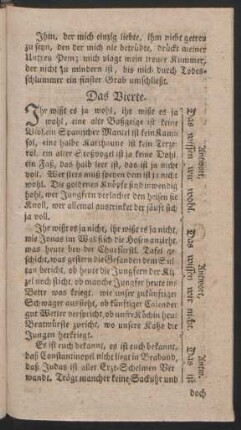 Ihm, der mich einzig liebte, ihm nicht getreu
zu seyn, den der mich nie betrübte, drückt meiner
Untreu Pein; mich plagt mein treuer Kummer,
der nicht zu mindern ist, bis mich durch Todes-
schlummer ein finster Grab umschließt.
Das Vierte.
Ihr wißt es ja wohl, ihr wißt es ja
wohl, eine alte Baßgeige ist keine
Violein Spanischer Mantel ist kein Kami
sol, eine halbe Karthaune ist kein Terze-
rol, ein alter Stoßvogel ist keine Dohl,
ein Faß, das halb leer ist, das ist ja nicht
voll. Wer stets muß speyen dem ist ja nicht
wohl. Die goldenen Knöpfe sind inwendig
hohl, wer Jungfern verlachet den heißen sie
Knoll, wer allemal austrinket der säuft sich
ja voll.
Ihr wißt es ja nicht, ihr wißt es ja nicht,
wie Jonas im Wallfisch die Hosen anzieht,
was heute bey der Churfürstl. Tafel ge-
schicht, was gestern die Gesanden dem Sul-
tan bericht, ob heute die Jungfern der Kü-
zel noch sticht, ob manche Jungfer heute ins
Bette was kriegt, wie unser zukünftiger
Schwager aussieht, ob künftiger Calender
gut Wetter verspricht, ob unsre Köchin heut
Bratwürste zuricht, wo unsere Katze die
Jungen herkriegt.
Es ist euch bekannt, es ist euch bekannt,
daß Constantinopel nicht liegt in Braband,
daß Judas ist aller Erzt-Schelmen Ver
wandt. Trägt mancher keine Sackuhr und
doch
Antwort.
Das wissen wir wohl.
Antwort.
Das wissen wir nicht.
Antw.
Das ist